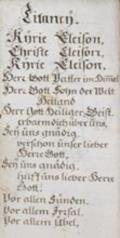 Litaney.
Kÿrie Eleison.
Christe Eleison.
Kÿrie Eleison,
Herr Gott Vatter im Himel
Herr Gott Sohn der Welt
Heiland
Herr Gott Heiliger Geist.
erbarm dich über uns,
Seÿ uns gnädig,
verschon unser lieber
Herre Gott,
Seÿ uns gnädig,
hilff uns lieber Herre
Gott.
Vor allen Sünden.
Vor allem Irsal.
Vor allem Übel,